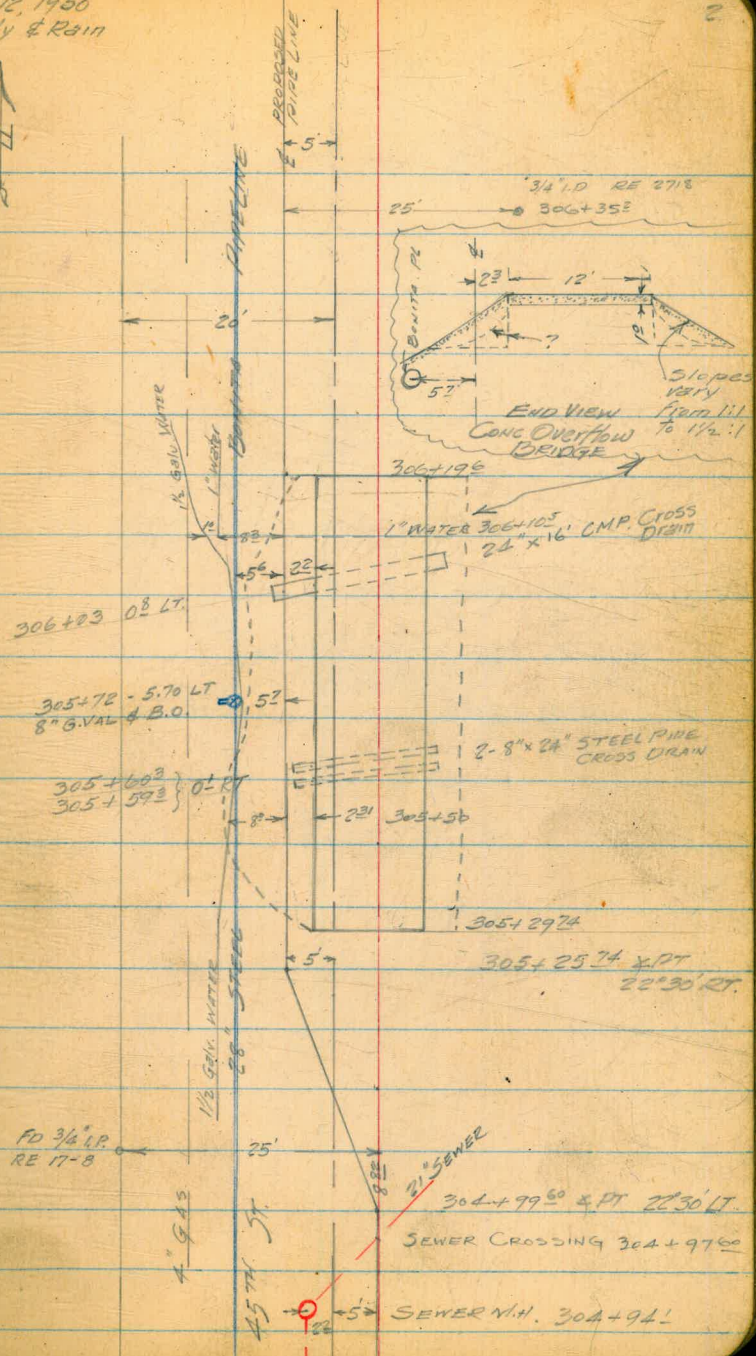 12, 1950
& Rain
2
PROPOSED
PIPE LINE
5'
3/4" I.D RE 2718
25'
306+35²
BONITA PIPELINE
BONITA PL
2³
12'
1⁰
?
5⁷
Slopes
vary
from 1:1
to 1½:1
END VIEW
CONC Overflow
BRIDGE
20'
1½ Galv. WATER
1" Water
306+19⁶
1" WATER 306+10⁵
24" x 16' C.M.P. Cross
Drain
8³
5⁶
2²
306+03 0⁸ LT.
305+72 - 5.70 LT
8" G.VAL & B.O.
5⁷
2-8" x 24" STEEL PIPE
CROSS DRAIN
305+60³
305+59³
0¹ RT
8⁰
2³¹
305+50
305+29⁷⁴
5'
305+25⁷⁴ PT
22°30' RT.
1½ Galv. WATER
28" STEEL
FD 3/4" I.P.
RE 17-8
25'
21" SEWER
304+99⁶⁰ PT 22°30' LT.
4" GAS
45TH. ST.
SEWER CROSSING 304+97⁶⁰
5'
SEWER M.H. 304+94¹